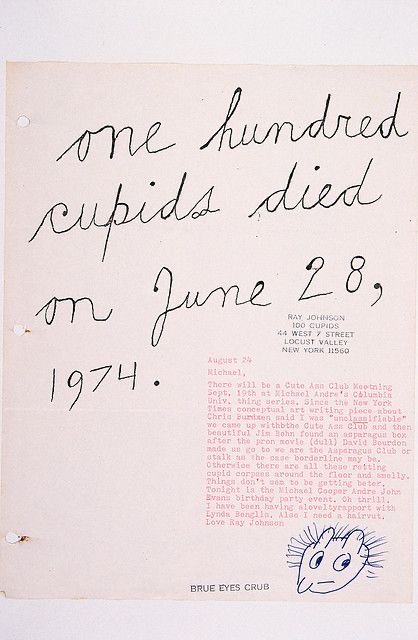 one hundred
cupids died
on June 28,
1974.
RAY JOHNSON
100 CUPIDS
44 WEST 7 STREET
LOCUST VALLEY
NEW YORK 11560
August 24
Michael,
There will be a Cute Ass Club Meetning
Sept. 19th at Michael Andre's Columbia
Univ. thing series. Since the New York
Times conceptual art writing piece about
Chris Burdmen said I was "unclassifiable"
we came up withbthe Cute Ass Club and then
beautiful Jim Bohn found an asparagus box
after the pron movie (dull) David Bourdon
made us go to we are the Asparagus Club or
stalk as the case borderline may be.
Otherwice there are all these rotting
cupid corpses around the floor and smelly.
Things don't sem to be getting beter.
Tonight is the Michael Cooper Andre John
Evans birthday party event. Oh thrill.
I have been having aloveltyrapport with
Lynda Benglis. Also I need a hairvut.
Love Ray Johnson
BRUE EYES CRUB